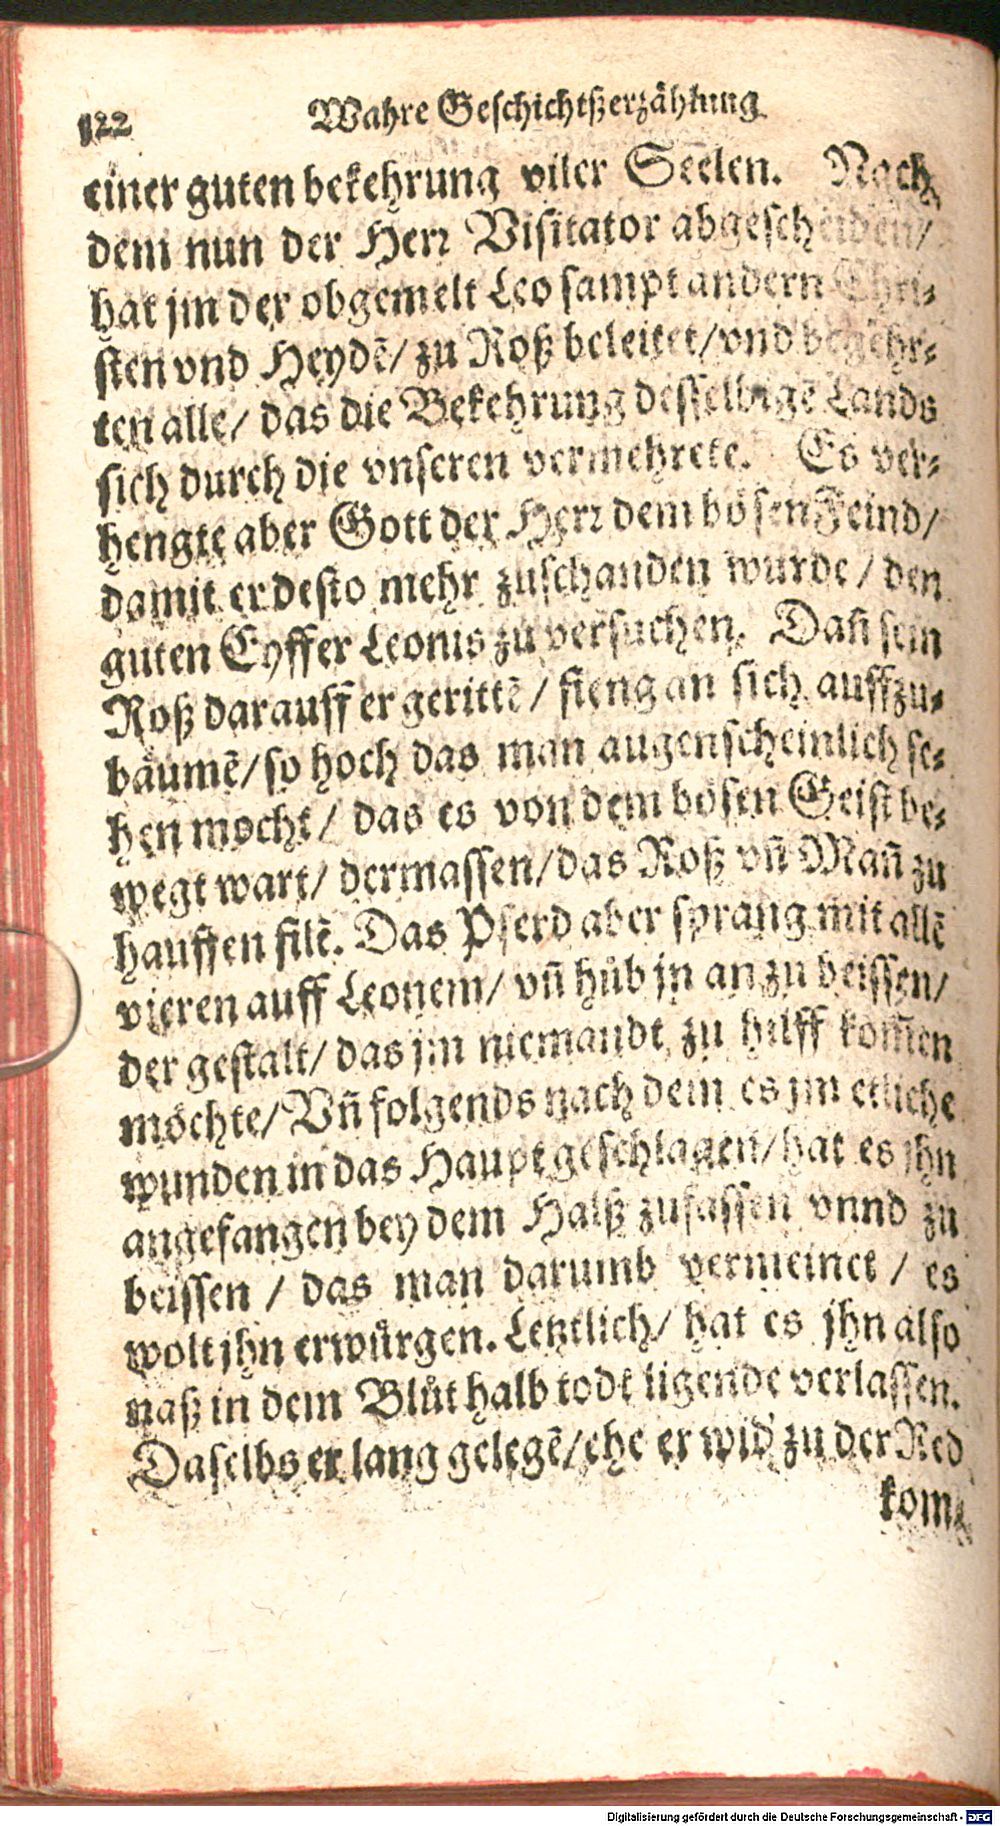 122 Wahre Geschichtßerzählung
einer guten bekehrung viler Seelen. Nach
dem nun der Herr Visitator abgescheiden/
hat jm der obgemelt Leo sampt andern Chri-
sten vnd Heydẽ/ zu Roß beleitet/ vnd begehr-
ten alle/ das die Bekehrung desselbigẽ Lands
sich durch die vnseren vermehrete. Es ver-
hengte aber Gott der Herr dem bösen Feind/
damit er desto mehr zuschanden wurde/ den
guten Eyffer Leonis zu versuchen. Dañ sein
Roß darauff er gerittẽ/ fieng an sich auffzu-
bäumẽ/ so hoch das man augenscheinlich se-
hen mocht/ das es von dem bösen Geist be-
wegt wart/ dermassen/ das Roß vñ Mañ zu
hauffen filẽ. Das Pferd aber sprang mit allẽ
vieren auff Leonem/ vñ hůb jn an zu beissen/
der gestalt/ das jm niemandt zu hilff kom̃en
möchte/ Vñ folgends nach dem es jm etliche
wunden in das Haupt geschlagen/ hat es jhn
angefangen bey dem Halß zufassen vnnd zu
beissen / das man darumb vermeinet / es
wolt jhn erwürgen. Letztlich/ hat es jhn also
naß in dem Blůt halb todt ligende verlassen.
Daselbs er lang gelegẽ/ ehe er wid' zu der Red
kom-
Digitalisierung gefördert durch die Deutsche Forschungsgemeinschaft - DFG